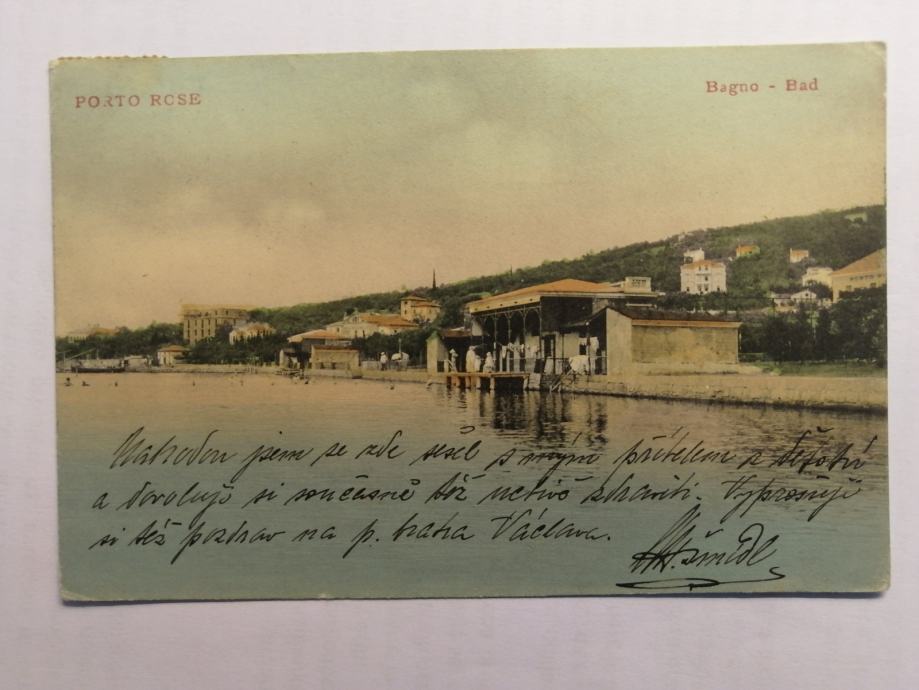 PORTO ROSE
Bagno - Bad
Náhodou jsem se zde sešel s mým přítelem z dětství
a dovoluji si současně též uctivě zdraviti. Vyprošuji
si též pozdrav na p. bratra Václava.
Šmidl